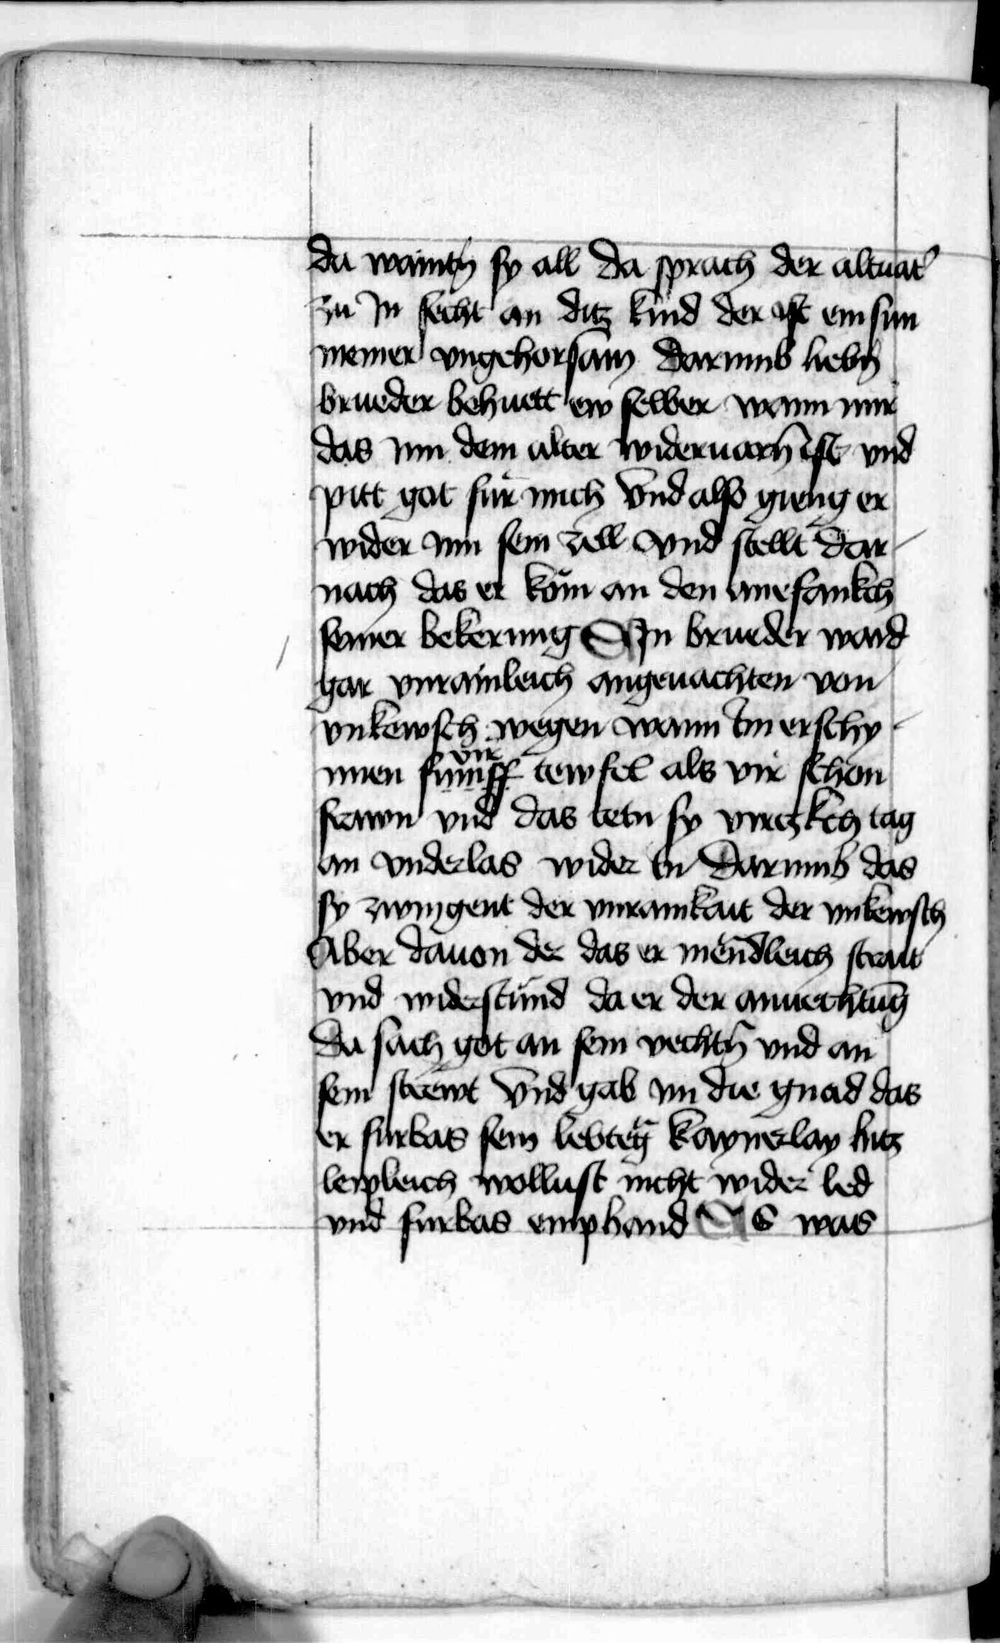 da waintn̄ sy all da sprach der altuat̾
zu In secht an ditz kind der ist ein sun
meiner vngehorsam darumb liebn̄
brueder behuett ew selber wann mir
das inn dem alter wideruarn̄ ist vnd
pitt got für mich vnd also gieng er
wider inn sein zell vnd stellt dar
nach das er köm an den anefankch
seiner bekerung Ein brueder ward
gar vnrainleich angeuachten von
vnkewsch wegen wann im erschy
nnen fümff vir tewfel als vir schon
frawn vnd das tetn sy virczkch tag
an vnderlas wider in darumb das
sy zwingent der vnrainkait der vnkewsch
Aber dauon der das er mëndleich strait
vnd widerstünd da er der anuechtūg
da sach got an sein vechtn̄ vnd an
sein strëwt vnd gab im die gnad das
er furbas sein lëbteg̃ kaynerlay hitz
leipleich wollust nicht wider led
vnd furbas emphand Es was